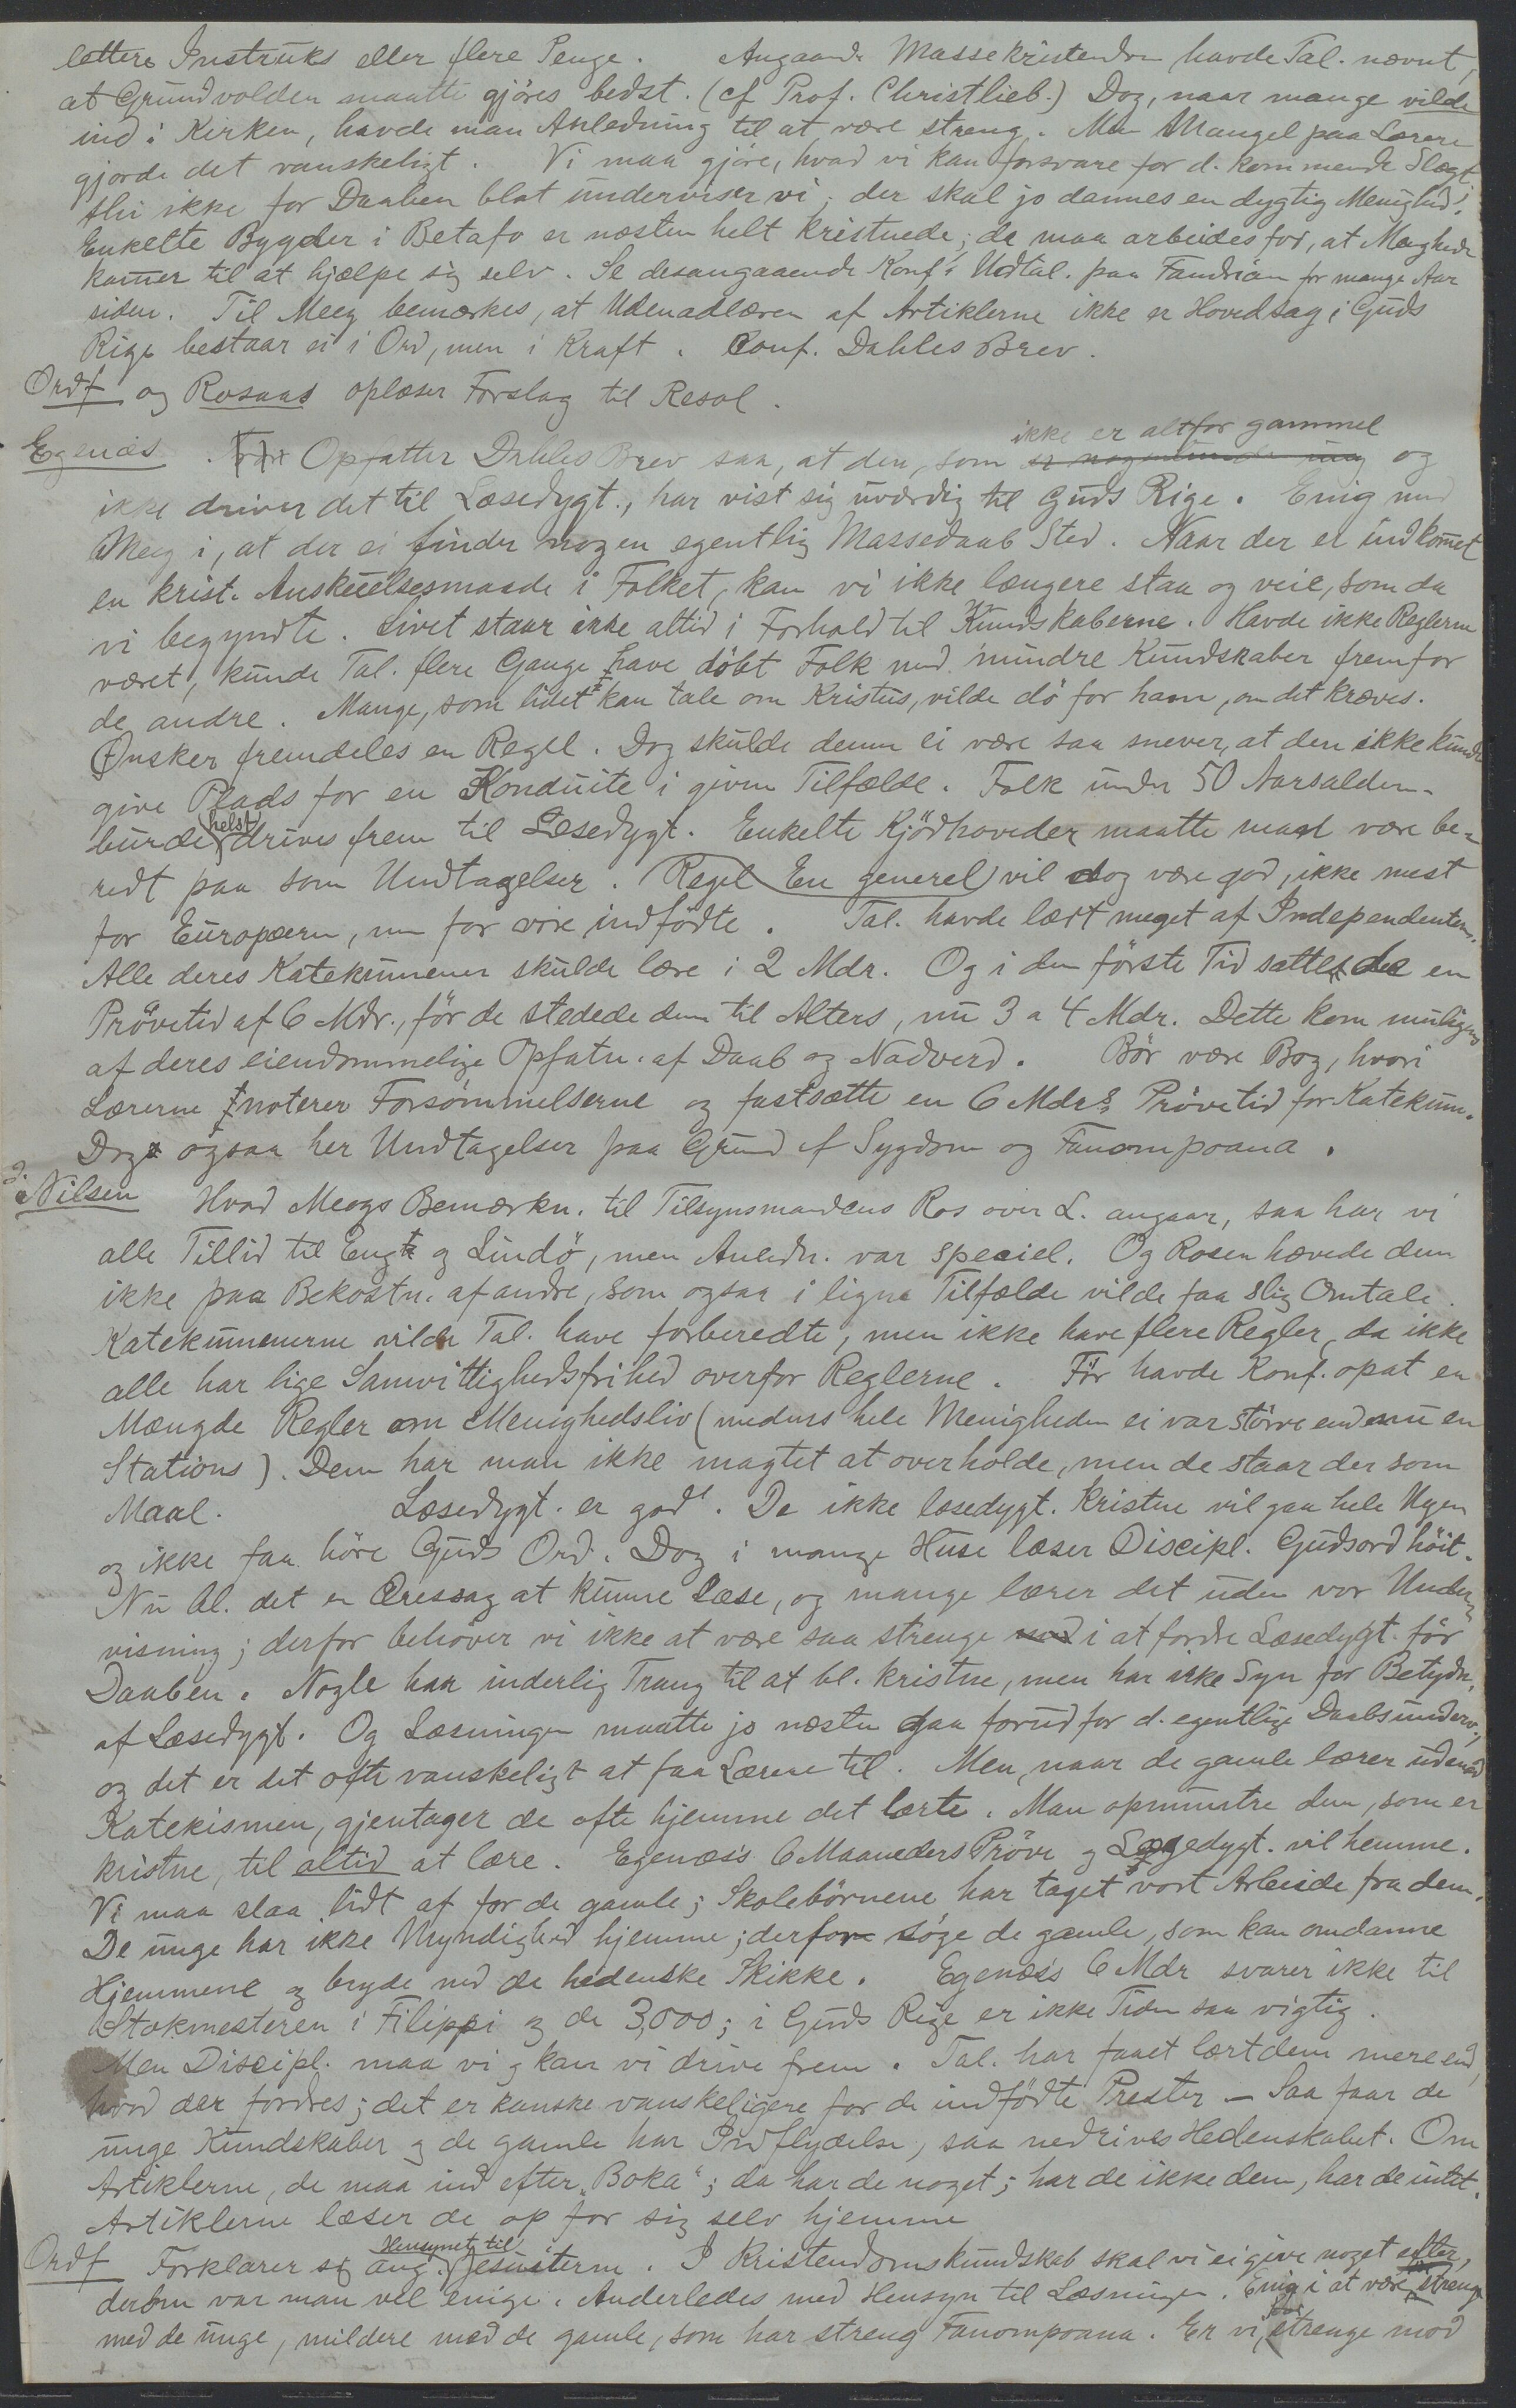 lettere Instruks eller flere Penge. Angaande Massekristendom havde Tal. nævnt,
at Grundvolden maatte gjöres bedst. (cf Prof. Christlieb.) Dog, naar mange vilde
ind i Kirken, havde man Anledning til at være streng. Men Mangel paa Lærere
gjorde det vanskeligt. Vi maa gjöre, hvad vi kan forsvare for d. kommende Slægt
thi ikke for Daaben blot underviser vi; der skal jo dannes en dygtig Menighed!
Enkelte Bygder i Betafo er næsten helt kristnede; da maa arbeides for, at Menghede
kommer til at hjælpe sig selv. Se desangaaende Konf's Udtal. paa Fandriana for mange Aar
siden. Til Meeg bemærkes, at Udenadlæren af Artiklerne ikke er Hovedsag; Guds
Rige bestaar ei i Ord, men i Kraft. Conf. Dahles Brev.
Ordf og Rosaas oplæser Forslag til Resol.
Egenæs. Opfatter Dahles Brev saa, at den, som ikke er altfor gammel og
ikke driver det til Læsedygt., har vist sig uværdig til Guds Rige. Enig med
Meeg i, at der ei finder nogen egentlig Massedaab Sted. Naar der er indkommet
en krist. Anskuelsesmaade i Folket, kan vi ikke længere staa og veie, som da
vi begyndte. Livet staar ikke altid i Forhold til Kundskaberne. Havde ikke Reglerne
været, kunde Tal. flere Gange have döbt Folk med mindre Kundskaber fremfor
de andre. Mange, som lidet kan tale om Kristus, vilde dö for ham, om det kræves.
Ønsker fremdeles en Regel. Dog skulde denne ei være saa snever, at den ikke kunde
give Plads for en Konduite i given Tilfælde. Folk under 50 Aarsalderen
burde helst drives frem til Læsedygt. Enkelte Kjödhoveder maatte man være be-
redt paa som Undtagelser. Regel En generel vil dog være god, ikke mest
for Europæern, men for vore indfödte. Tal. havde lært meget af Independenterne.
Alle deres Katekumener skulde lære i 2 Mdr. Og i den förste Tid sattes der en
Prövetid af 6 Mdr., för de stedede dem til Alters, nu 3 a 4 Mdr. Dette kom muligens
af deres eiendommelige Opfatn. af Daab og Nadverd. Bör være Bog, hvori
Lærerne noterer Forsömmelserne og fastsætte en 6 Mdrs Prövetid for Katekum.
Dog ogsaa her Undtagelser paa Grund af Sygdom og Fanompoana.
Nilsen Hvad Meegs Bemærkn. til Tilsynsmandens Ros over L. angaar, saa har vi
alle Tillid til Engh og Lindö, men Anledn. var speciel. Og Rosen hævede dem
ikke paa Bekostn. af andre, som ogsaa i ligne Tilfælde vilde faa slig Omtale.
Katekumenerne vilde Tal. have forberedte, men ikke have flere Regler, da ikke
alle har lige Samvittighedsfrihed overfor Reglerne. För havde Konf. opsat en
Mængde Regler om Menighedsliv (medens hele Menigheden ei var större end nu en
Stations). Dem har man ikke magtet at overholde, men de staar der som
Maal. Læsedygt. er god! De ikke læsedygt. kristne vil gaa hele Ugen
og ikke faa höre Guds Ord. Dog i mange Huse læser Discipl. Gudsord höit.
Nu bl. det en Æressag at kunne læse, og mange lærer det uden vor Under-
visning; derfor behöver vi ikke at være saa strenge i at fordre Læsedygt. för
Daaben. Nogle har inderlig Trang til at bl. kristne, men har ikke Syn for Betydn.
af Læsedygt. Og Læsningen maatte jo næsten gaa forud for d. egentlige Daabsunderv.,
og det er det ofte vanskeligt at faa Lærere til. Men, naar de gamle lærer udenad
Katekismen, gjentager de ofte hjemme det lærte. Man opmuntre dem, som er
kristne, til altid at lære. Egenæs's 6 Maaneders Pröve og Læsedygt. vil hemme.
Vi maa slaa lidt af for de gamle; Skolebörnene har taget vort Arbeide fra dem.
De unge har ikke Myndighed hjemme; derfor söge de gamle, som kan omdanne
Hjemmene og bryde ned de hedenske Skikke. Egenæs's 6 Mdr svarer ikke til
Stokmesteren i Filippi og de 3,000; i Guds Rige er ikke Tiden saa vigtig.
Men Discipl. maa vi og kan vi drive frem. Tal. har faaet lært dem mere end,
hvad der fordres; det er kanske vanskeligere for de indfödte Prester – Saa faar de
unge Kundskaber og de gamle har Indflydelse, saa nedrives Hedenskabet. Om
Artiklerne, de maa ind efter "Boka"; da har de noget; har de ikke dem, har de intet.
Artiklerne læser de op for sig selv hjemme
Ordf Forklarer sig ang. Hensynet til Jesuiterne. I Kristendomskundskab skal vi ei give noget efter,
derom var man vel enige. Anderledes med Hensyn til Læsningen. Enig i at være strenge
med de unge, mildere med de gamle, som har streng Fanompoana. Er vi for strenge mod